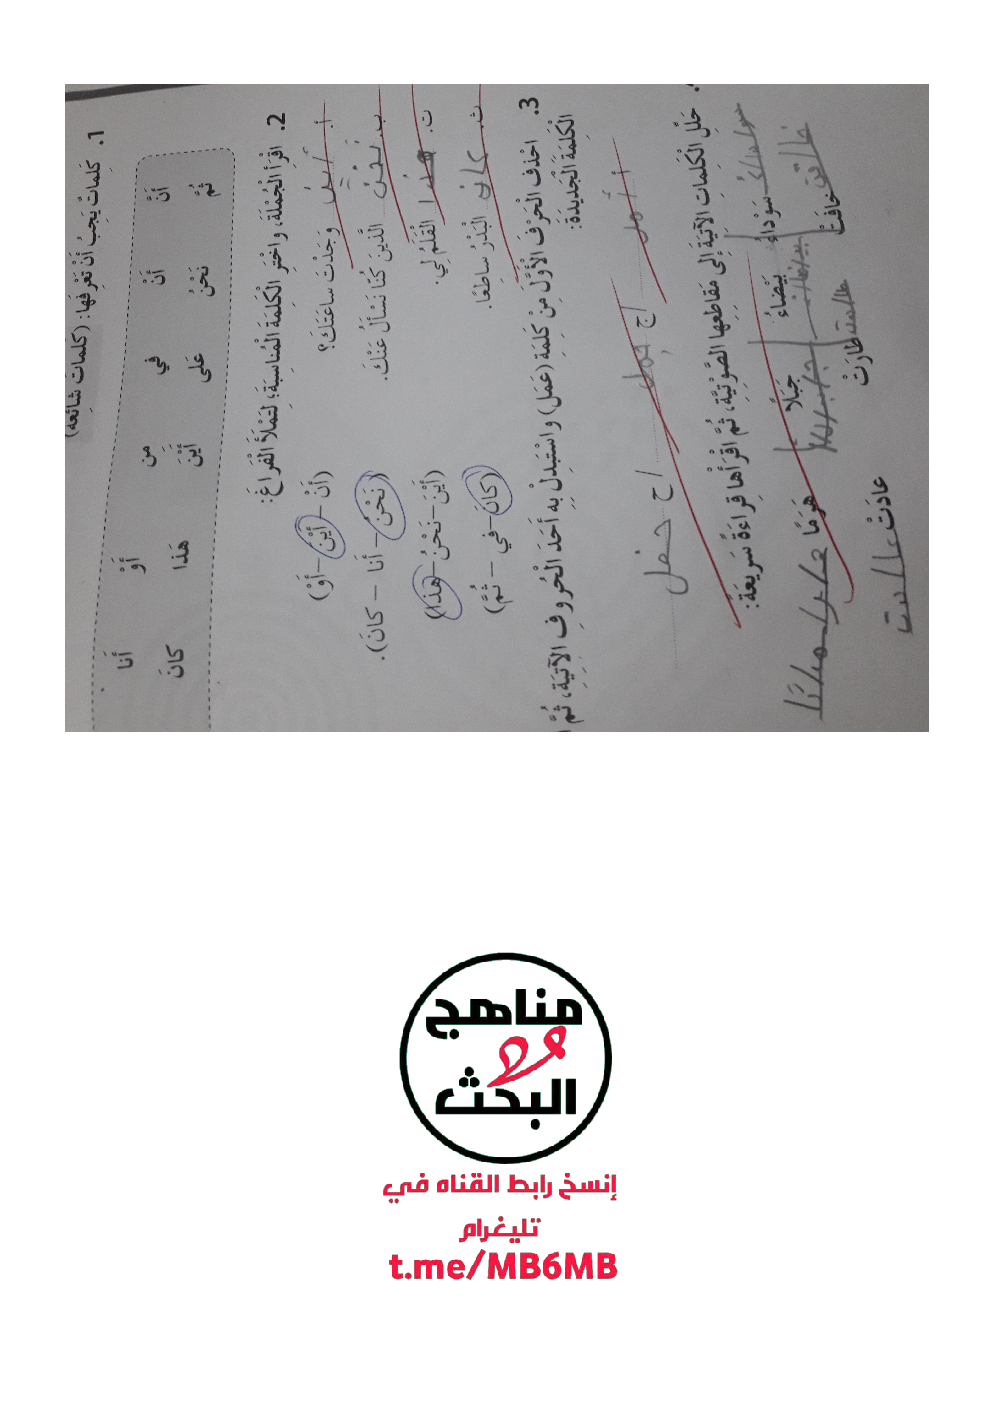 1. كَلِماتٌ يَجِبُ أَنْ تَعْرِفَها: (كَلِمات شائِعة)
أَنَّ أَنْ في مِن أَوْ أَنَا
ثُمَّ نَحْنُ عَلى أَيْنَ هَذا كانَ
2. اقْرَأِ الْجُمْلَةَ، واخْتَرِ الْكَلِمَةَ الْمُناسِبَةَ؛ لِتَمْلَأَ الْفَراغَ:
أ. أين وَجَدْتَ ساعَتَكَ؟ (أَنْ – أَيْنَ – أَوْ)
ب. نَحْنُ الَّذينَ كُنّا نَسْأَلُ عَنْكَ. (نَحْنُ – أَنا – كانَ).
ت. هذا الْقَلَمُ لِي. (أَيْنَ – نَحْنُ – هَذا)
ث. كان الْبَدْرُ ساطِعًا. (كانَ – في – ثُمَّ)
3. احْذِفِ الْحَرْفَ الْأَوَّلَ مِنْ كَلِمَةِ (عَمَل) واسْتَبْدِلْ بِهِ أَحَدَ الْحُروفِ الآتِيَةِ، ثُمَّ ا
الْكَلِمَةَ الْجَديدَةَ:
أ أمل / ج جمل / ح حمل
حَلِّلِ الْكَلِماتِ الآتِيَةَ إِلى مَقاطِعِها الصَّوْتِيَّةِ، ثُمَّ اقْرَأْها قِراءَةً سَريعَةً:
سَوْداءُ بَيْضاءُ جَبَلًا هَرَمًا
خافَتْ طارَتْ عادَتْ
مناهج
البحث
إنسخ رابط القناه في
تليغرام
t.me/MB6MB